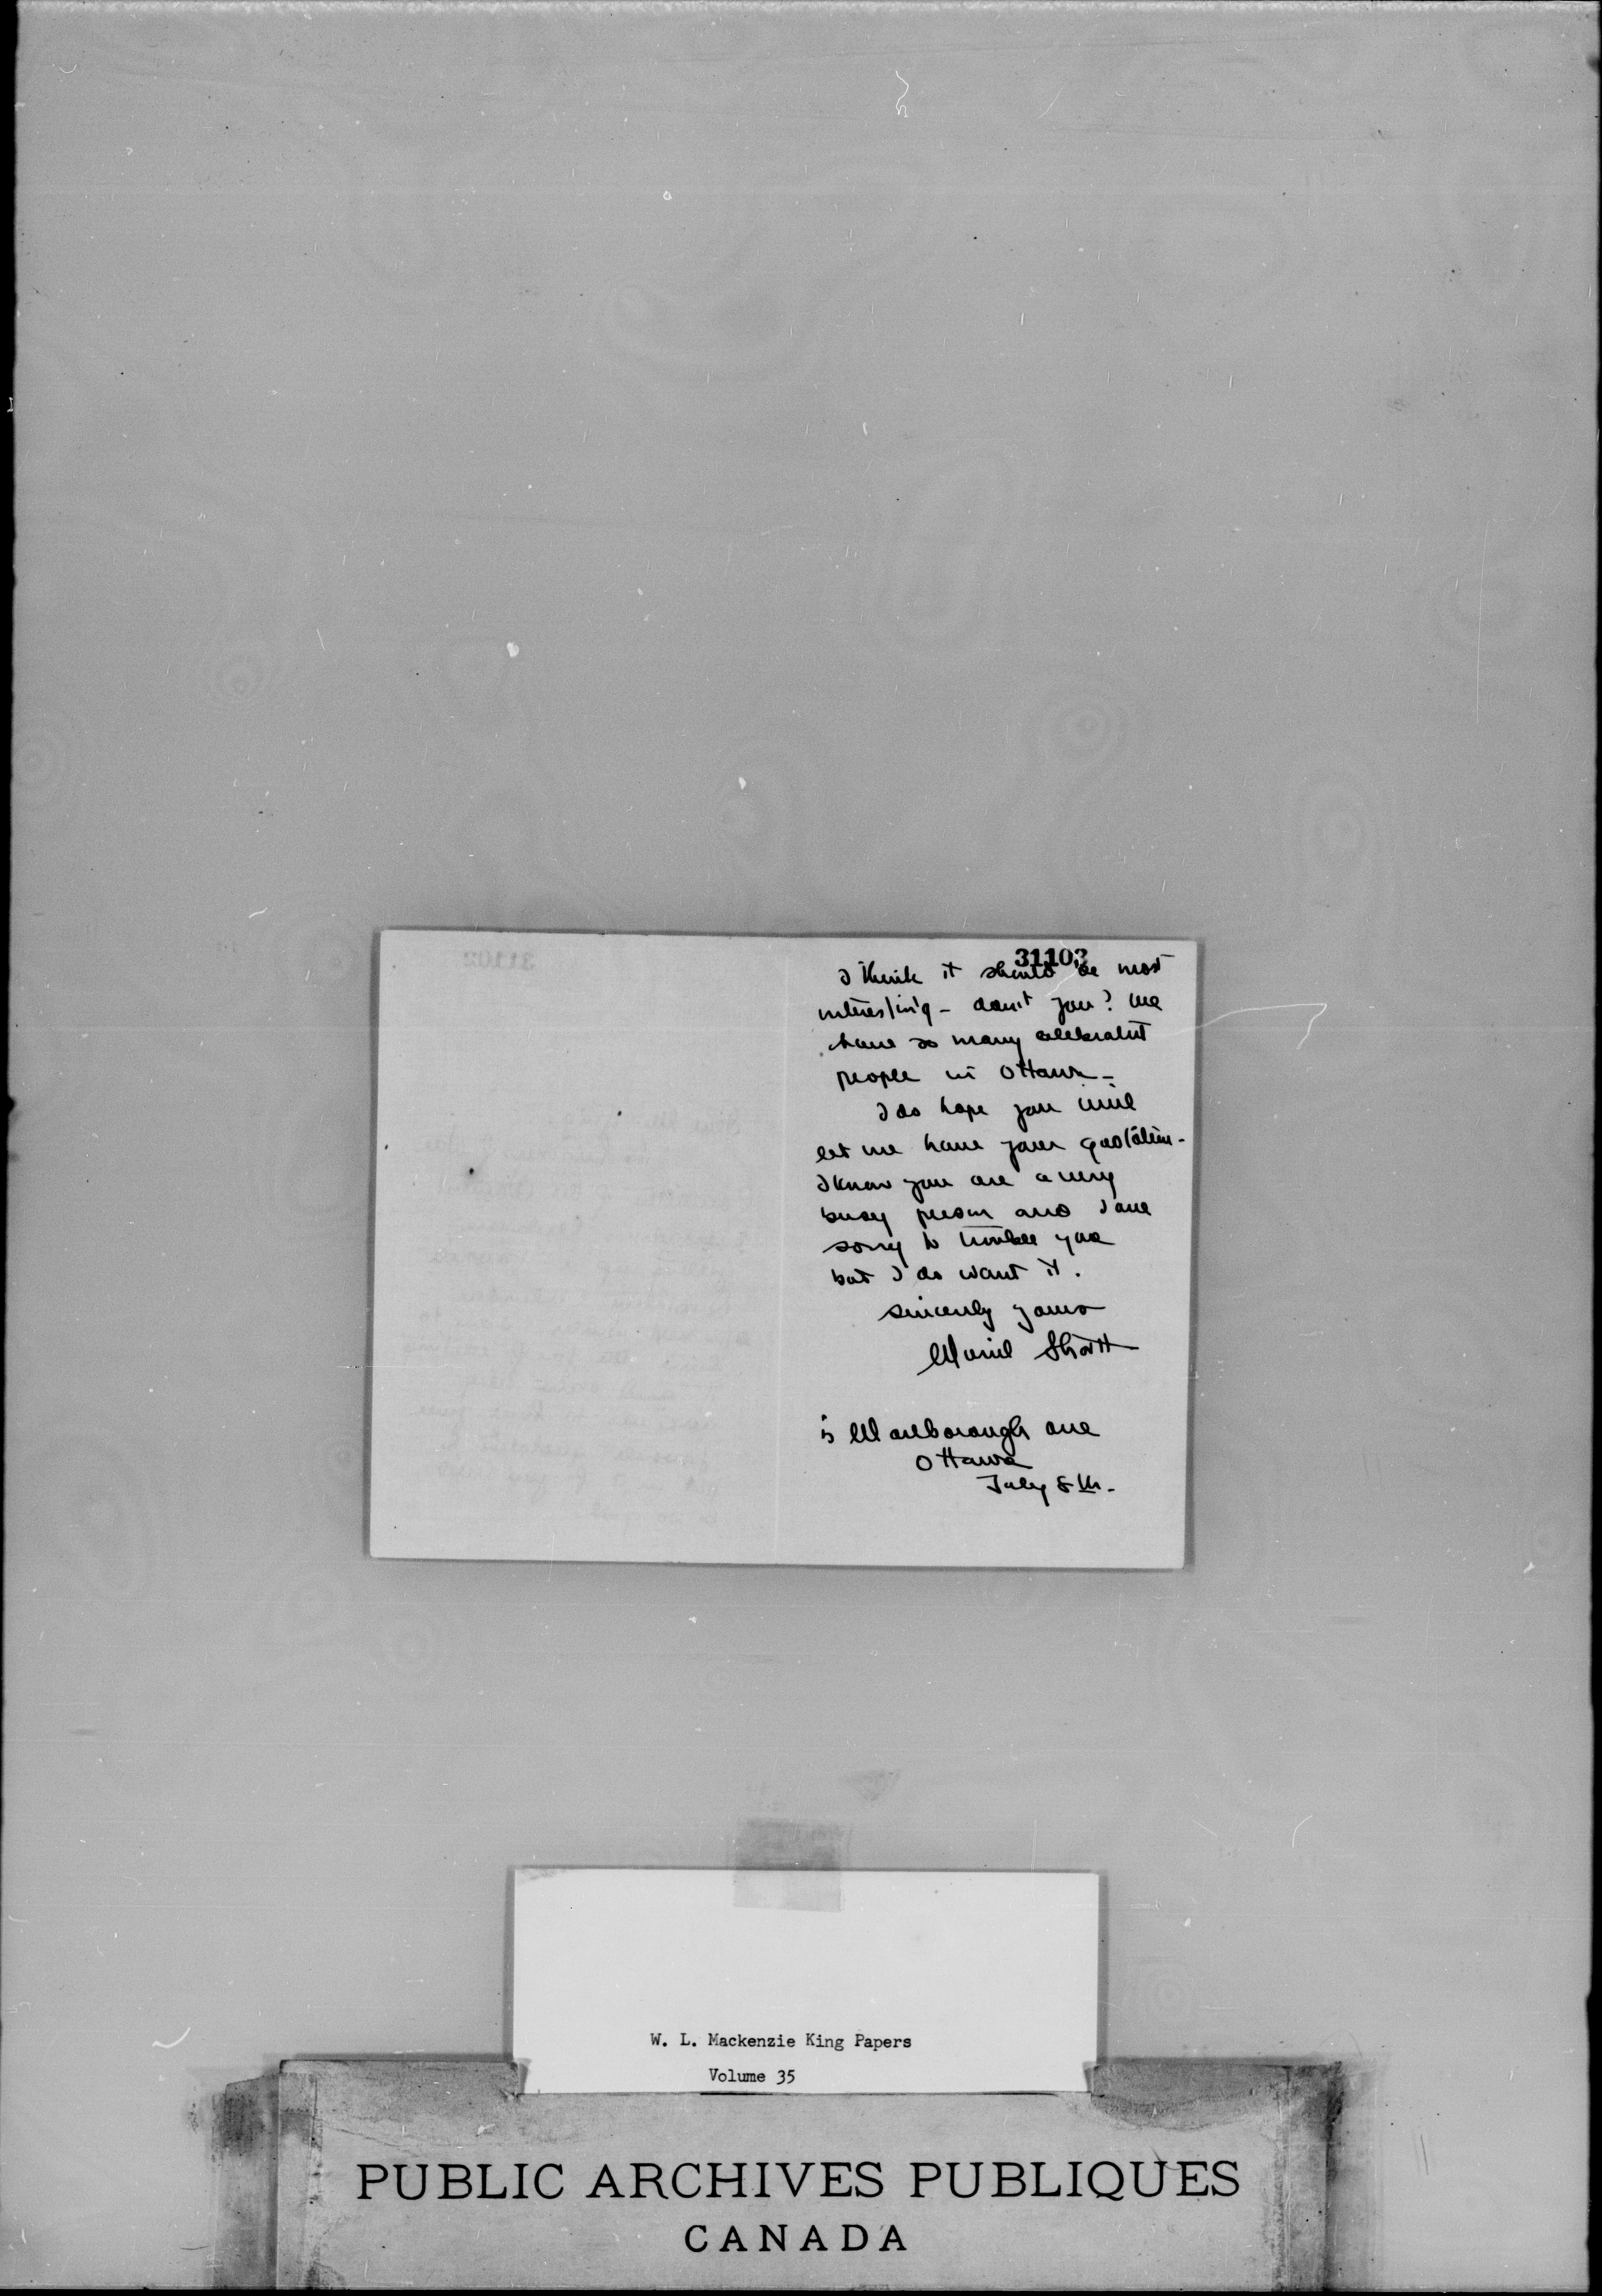 31103
I think it should be most
interesting - don't you? We
have so many celebrated
people in Ottawa -
I do hope you will
let me have your quotation -
I know you are a very
busy person and I am
sorry to trouble you
but I do want it.
Sincerely yours
Muriel Shortt
Marlborough Ave
Ottawa
July 8th -
W. L. Mackenzie King Papers
Volume 35
PUBLIC ARCHIVES PUBLIQUES
CANADA